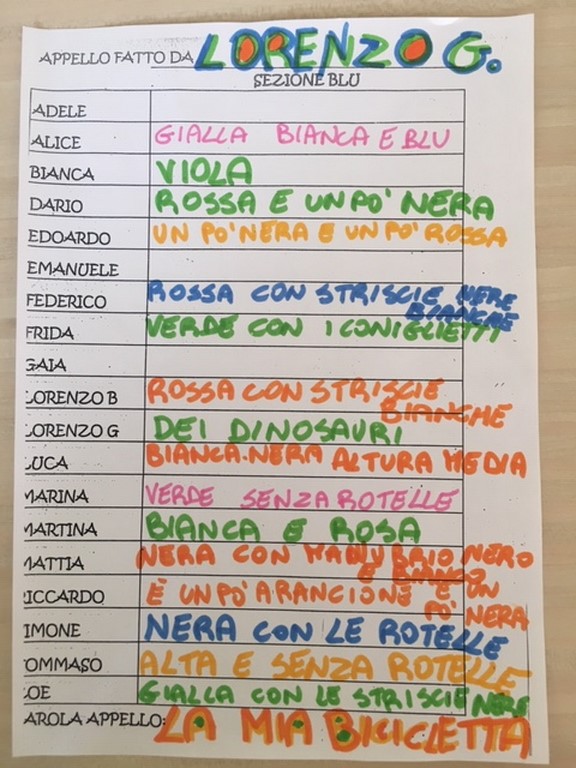 APPELLO FATTO DA LORENZO G.
SEZIONE BLU
ADELE
ALICE GIALLA BIANCA E BLU
BIANCA VIOLA
DARIO ROSSA E UN PO' NERA
EDOARDO UN PO' NERA E UN PO' ROSSA
EMANUELE
FEDERICO ROSSA CON STRISCIE NERE
BIANCHE
FRIDA VERDE CON I CONIGLIETTI
GAIA
LORENZO B ROSSA CON STRISCIE
BIANCHE
LORENZO G DEI DINOSAURI
LUCA BIANCA-NERA ALTURA MEDIA
MARINA VERDE SENZA ROTELLE
MARTINA BIANCA E ROSA
MATTIA NERA CON MANUBRIO NERO
E BIANCO
RICCARDO È UN PO' ARANCIONE E UN
PO' NERA
IMONE NERA CON LE ROTELLE
TOMMASO ALTA E SENZA ROTELLE
ZOE GIALLA CON LE STRISCIE NERE
AROLA APPELLO: LA MIA BICICLETTA